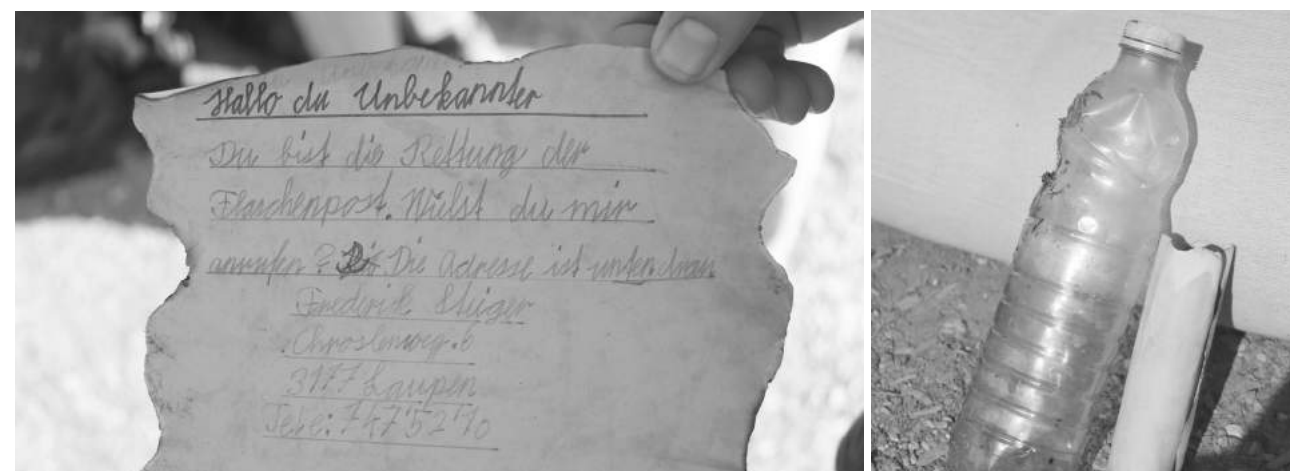 Hallo du Unbekannter
Du bist die Rettung der
Flaschenpost. Wilst du mir
anrufen? Die Adresse ist unten dran
Frederik Stüger
6
3177 Laupen
Tele: 747 52 70